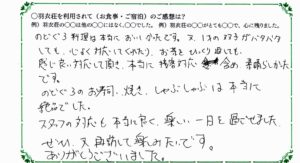 ○羽衣荘を利用されて（お食事・ご宿泊）のご感想は？
例）羽衣荘の○○は他の○○にはなく、○○でした。 例）羽衣荘の○○がとても○○で、心に残りました。
のどぐろ料理は本当においしかったです。又、1才の双子がバタバタ
しても、心よく対応してくれたり、お茶をひっくり返しても、
感じ良い対応して頂き、本当に接客対応含め素晴らしかった
です。
のどぐろのお寿司、焼き、しゃぶしゃぶは本当に
絶品でした。
スタッフの対応も本当に良く、楽しい一日を過ごせました
ぜひ、又再訪して楽しみたいです。
ありがとうございました。